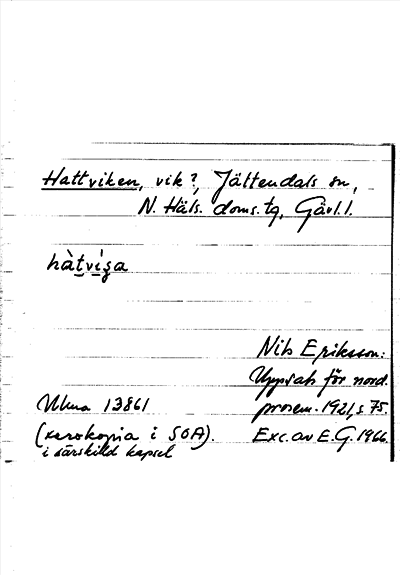 Hattviken, vik?, Jättendals sn,
N. Häls. doms.tg, Gävl.l.
hàtvíga
Nils Eriksson:
Uppsats för nord.
prosem. 1921, s 75.
Ulma 13861
(xerokopia i SOA).
i särskild kapsel
Exc. av E.G. 1966.